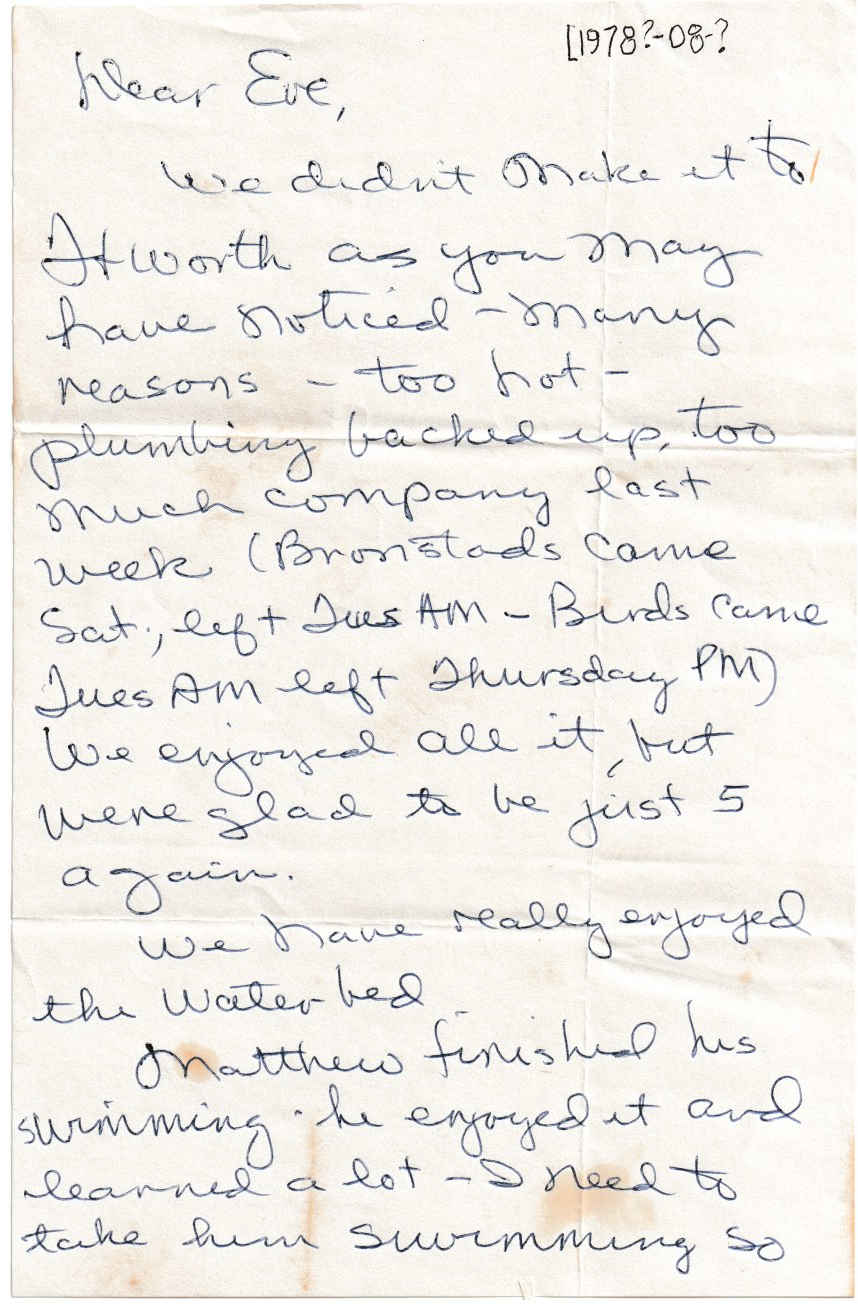 [1978?-08-?
Dear Eve,
We didn't make it to
Ft Worth as you may
have noticed - many
reasons - too hot -
plumbing backed up, too
much company last
week (Bronstads came
Sat., left Tues AM - Birds came
Tues AM left Thursday PM)
We enjoyed all it, but
were glad to be just 5
again.
We have really enjoyed
the water bed
Matthew finished his
swimming - he enjoyed it and
learned a lot - I need to
take him swimming so